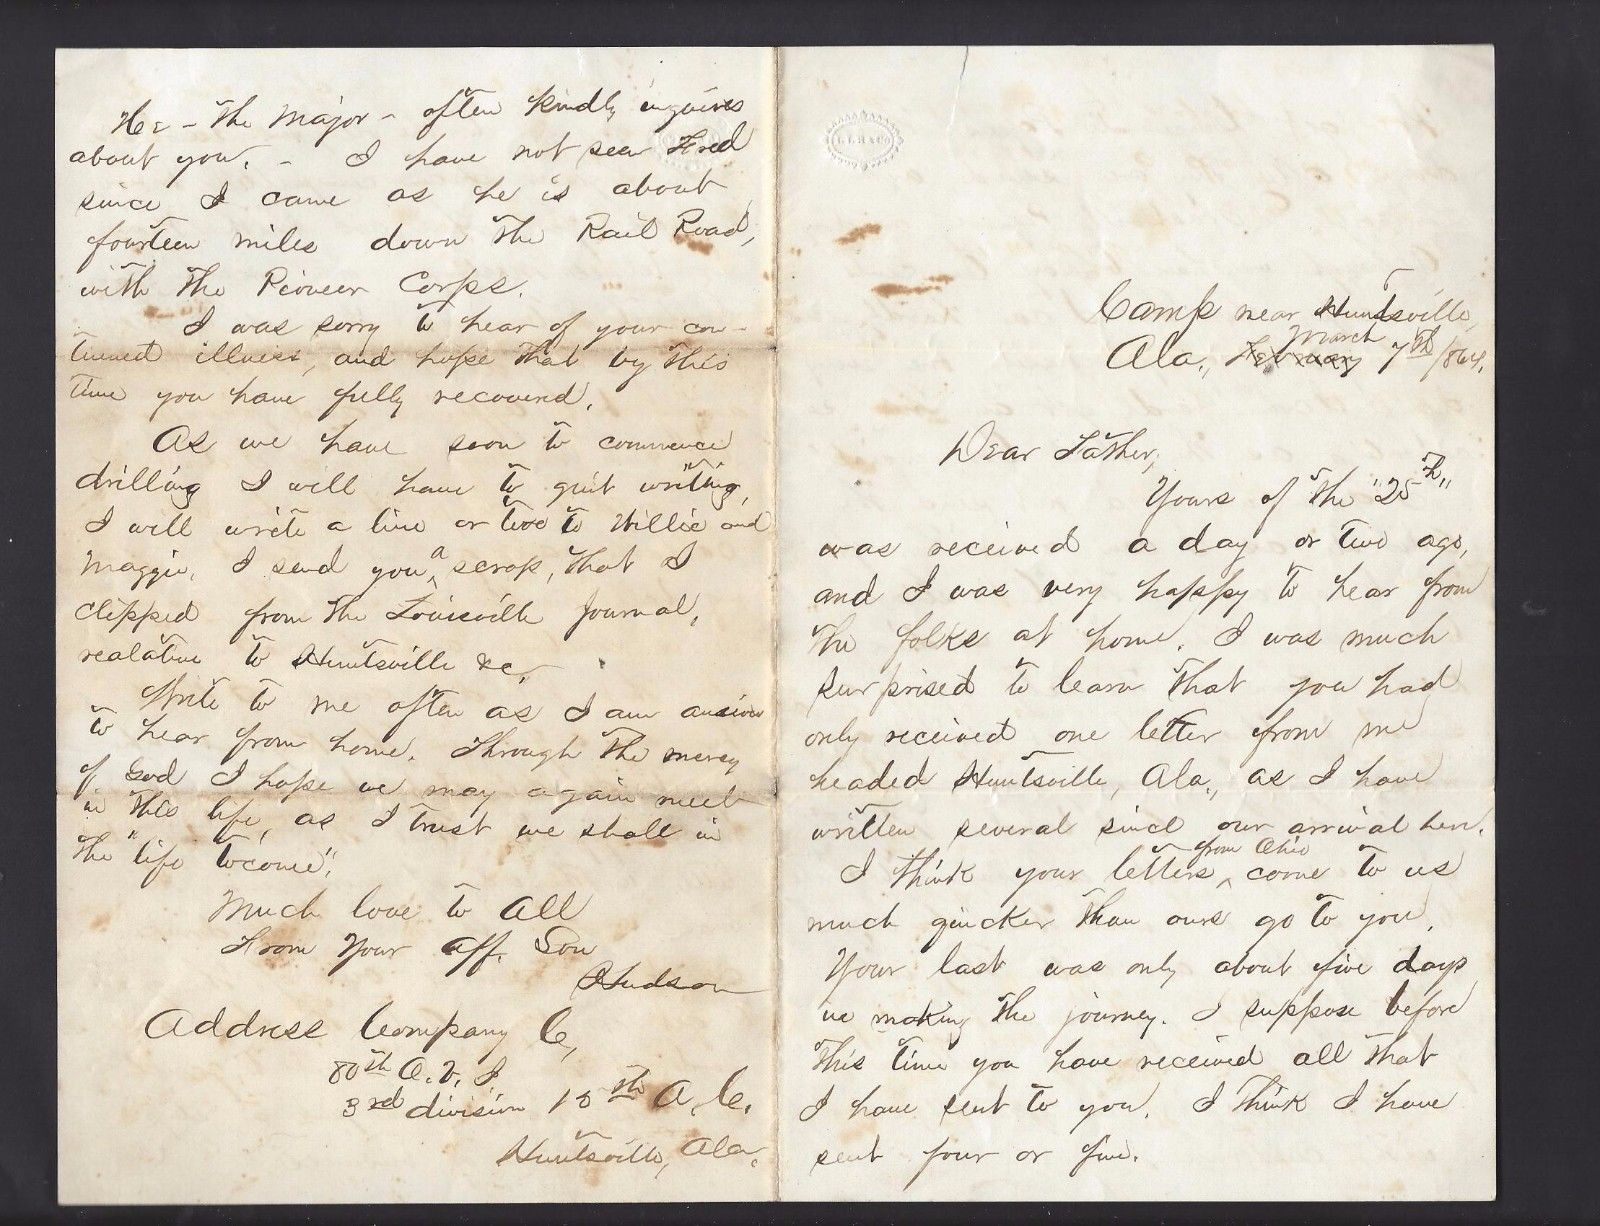 Camp near Huntsville,
March
Ala., February 7th /864.
Dear Father,
Yours of the "25th"
was received a day or two ago,
and I was very happy to hear from
the folks at home. I was much
surprised to learn that you had
only received one letter from me
headed Huntsville, Ala., as I have
written several since our arrival here.
from Ohio
I think your letters ^ come to us
much quicker than ours go to you.
Your last was only about five days
in making the journey. I suppose before
this time you have received all that
I have sent to you. I think I have
sent four or five.
He - the Major - often kindly inquires
about you. - I have not seen Fred
since I came as he is about
fourteen miles down the Rail Road,
with the Pioneer Corps.
I was sorry to hear of your con-
tinued illness, and hope that by this
time you have fully recovered.
As we have soon to commence
drilling I will have to quit writing,
I will write a line or two to Willie and
Maggie. I send you ^a scrap, that I
clipped from the Louisville Journal,
realative to Huntsville &c.
Write to me often as I am anxious
to hear from home. Through the mercy
of God I hope we may again meet
in this life, as I trust we shall in
the "life to come".
Much love to All
From Your aff. Son
Hudson
Address Company C,
80th O. V. I.
3rd division 15th A. C.
Huntsville, Ala.